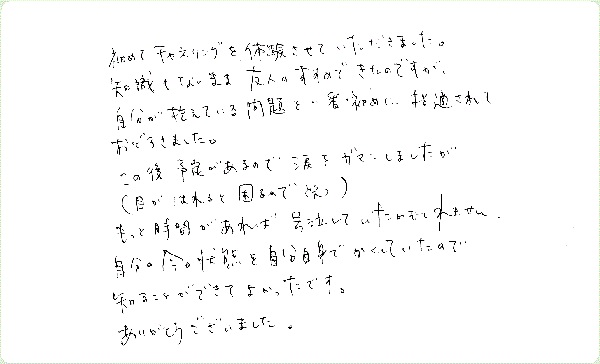 初めてチャネリングを体験させていただきました。
知識もないまま友人のすすめできたのですが、
自分が抱えている問題を一番初めに指適されて
おどろきました。
この後予定があるので涙をガマンしましたが
(目がはれると困るので笑)
もっと時間があれば号泣していたかもしれません。
自分の今の状態を自分自身でかくしていたので
知ることができてよかったです。
ありがとうございました。